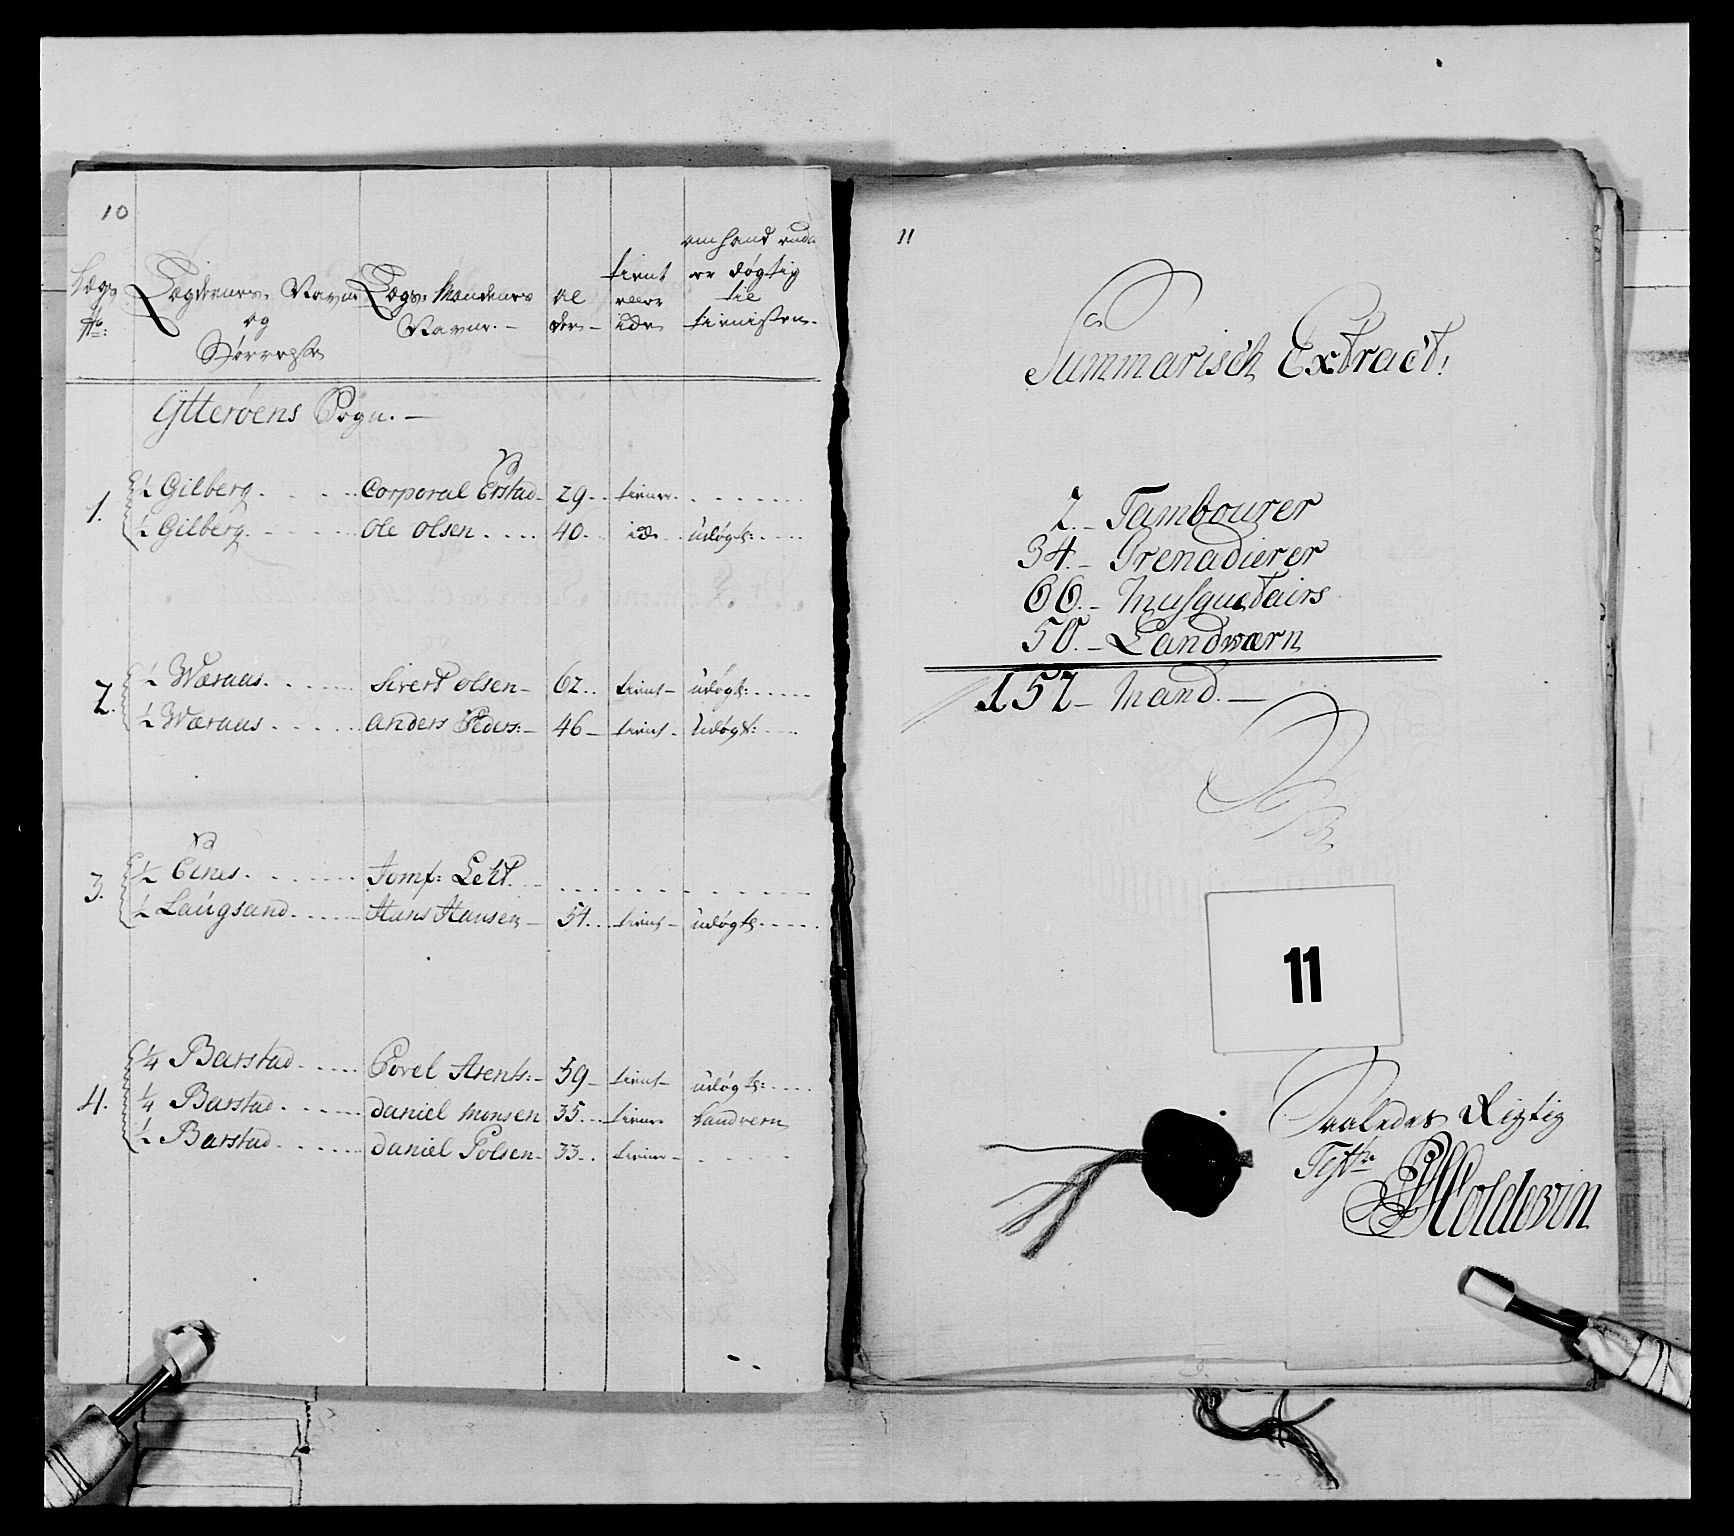 10
Lægs No:
Lægdernes Navne og Størrelse
Lægs Mandenes Navne. –
al der –
tient eller ide
om hand endn er døgtig til tienisten. –
Ytterøens Sogn. –
1. ½ Gilberg. Corporal Erstad – 29. tiener
½ Gilberg. Ole Olsen 40. ide udøgt:
2. ½ Wæraas. Sivert Olsen – 62. tient – udøgt:
½ Wæraas Anders Peders: – 46 – tient – Udøgt:
3. ½ Eines. Jomf: Letl.
½ Laugsand. Hans Hansen – 54. tient – udøgt:
4. ¼ Barstad Povel Arents: – 59 – tient – udøgt:
¼ Barstad Daniel Monsen 35. tiener Landvern
½ Barstad. Daniel Polsen – 33. tiener –
11
Summarisch Extract:
2. – Tambourer
34. – Grenadierer
66. – Musquetairs
50. – Landværn
152 – Mand. –
11
Saaledes Rigtig
Test:
Coldevin